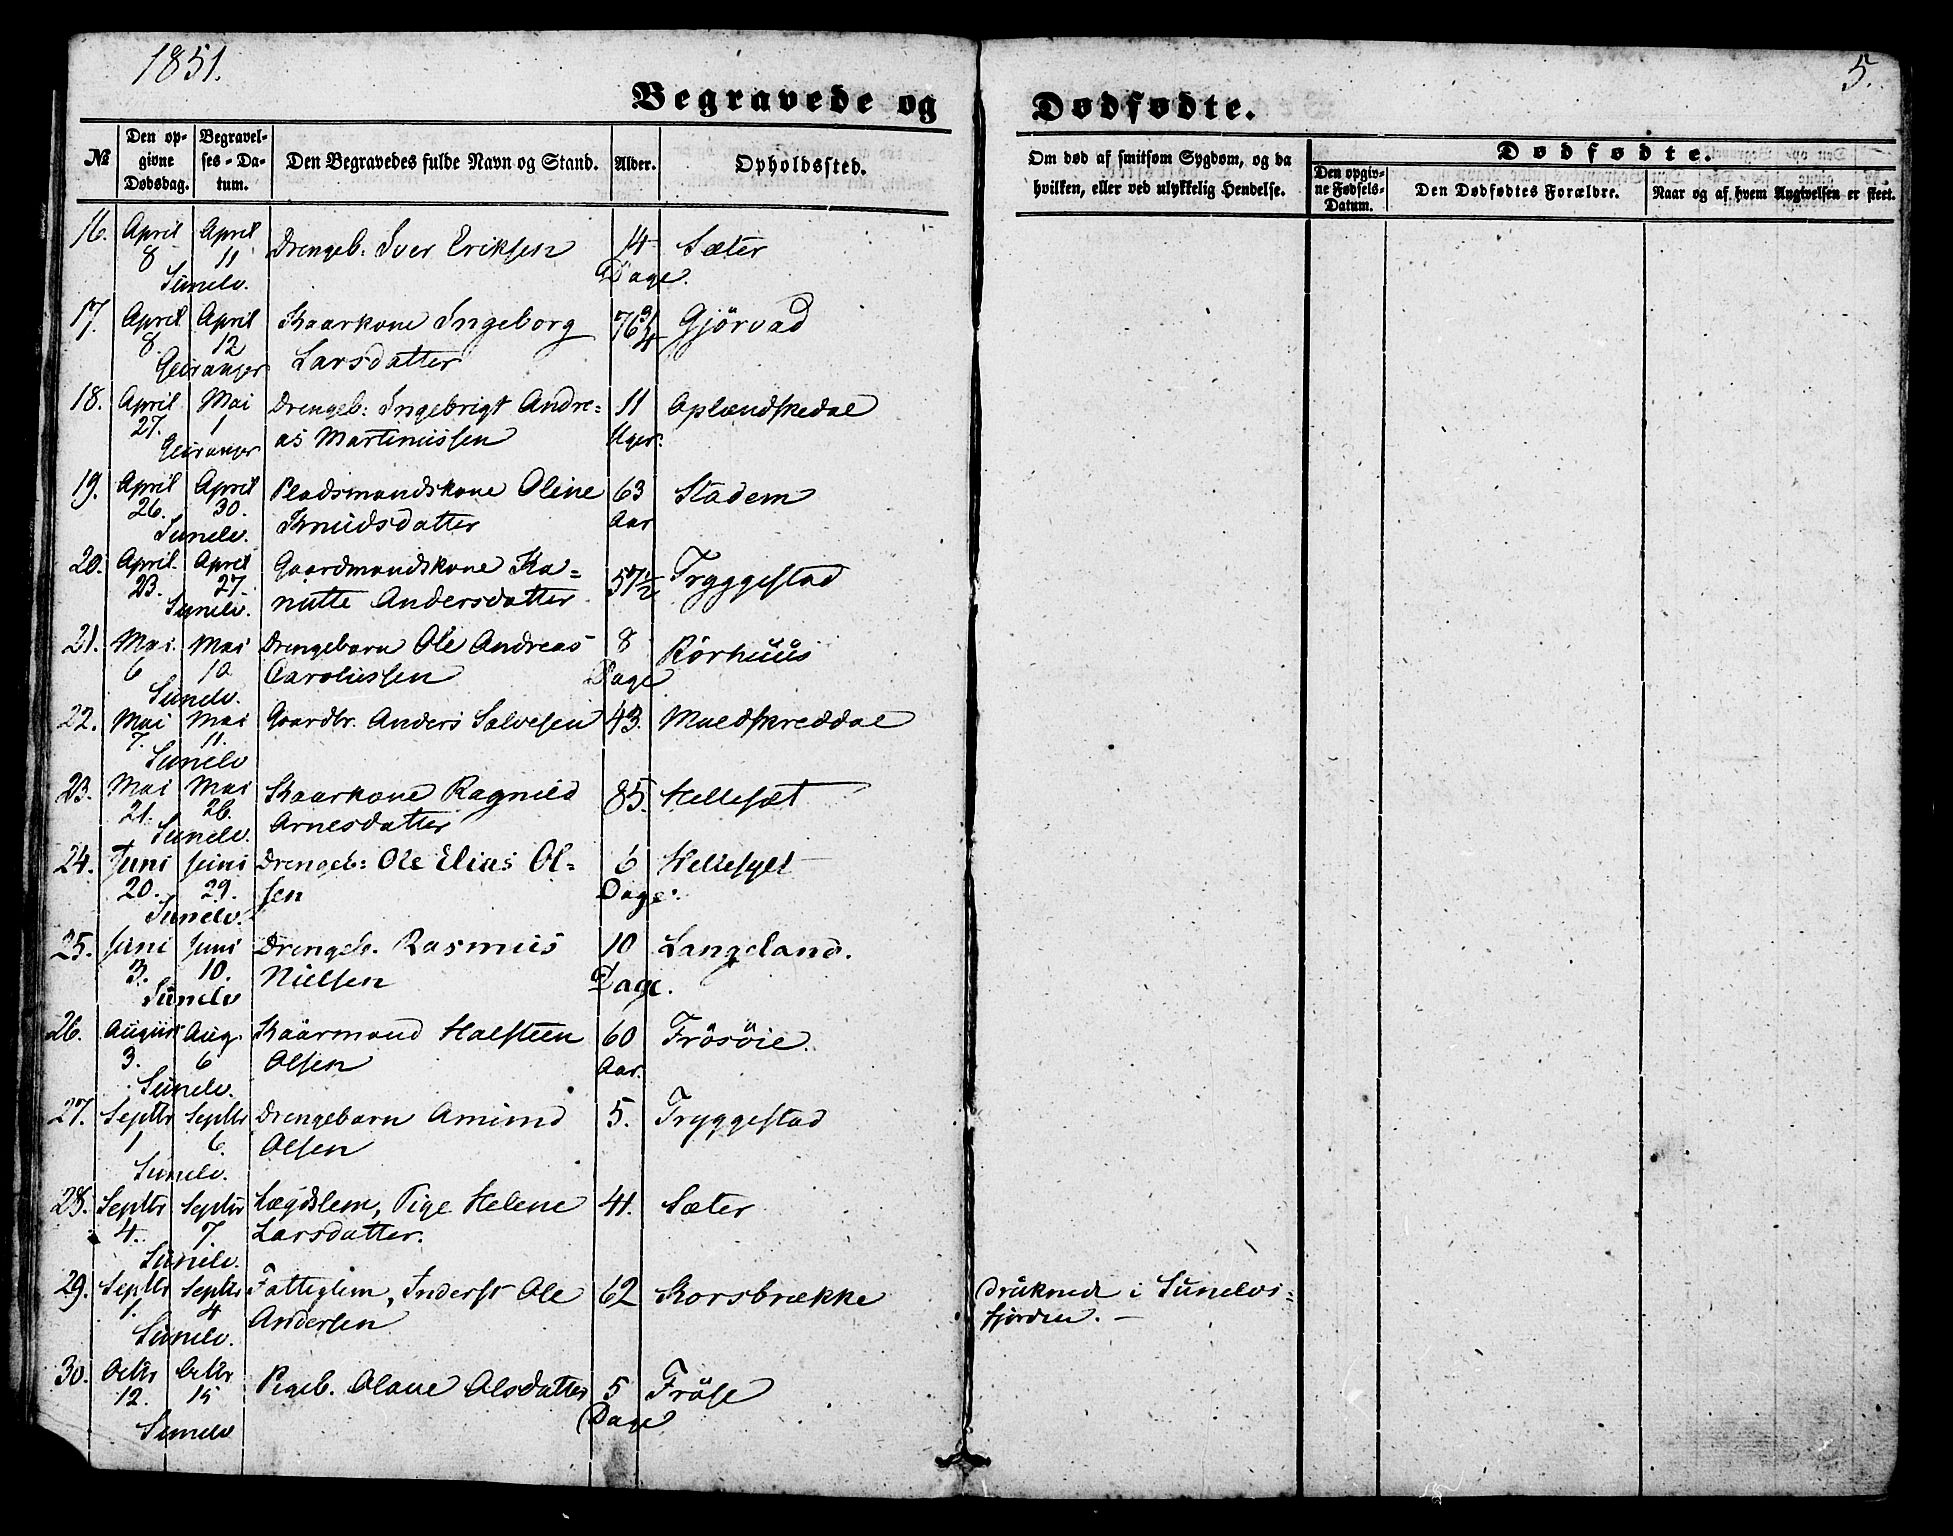 1851.
5.
Begravede og Dødfødte.
№ Den opgivne Dødsdag. Begravelses-Datum. Den Begravedes fulde Navn og Stand. Alder. Opholdssted. Om død af smitsom Sygdom, og da hvilken, eller ved ulykkelig Hendelse. Dødfødte. Den opgivne Fødsels-Datum. Den Dødfødtes Forældre. Naar og af hvem Angivelsen er skeet.
16. April April Drengeb: Iver Eriksen 14 Sæter
8 11 Dage.
Sunelv.
17. April April Kaarkone Ingeborg 76 3/4 Gjørvad
8 12 Larsdatter
Geiranger
18. April Mai Drengeb: Ingebrigt Andre= 11 Oplændskedal
27. 1 as Martinussen Uger.
Geiranger
19. April April Pladsmandskone Oline 63 Stadem
26. 30. Knudsdatter Aar
Sunelv.
20. April April Gaardmandskone Ka= 57 1/2 Tryggestad
23. 27. nutte Andersdatter
Sunelv.
21. Mai Mai Drengebarn Ole Andreas 8 Rørhuus
6 10 Carolussen Dage
Sunelv.
22. Mai Mai Gaardbr. Anders Salvesen 43. Muldskreddal
7. 11.
Sunelv
23. Mai Mai Kaarkone Ragnild 85. Hellesæt
21. 26. Arnesdatter
Sunelv.
24. Juni Juni Drengeb: Ole Elias Ol= 6 Hellesylt
20. 29. sen Dage.
Sunelv.
25. Juni Juni Drengeb. Rasmus 10 Langeland.
3. 10. Nielsen Dage.
Sunelv
26. August Aug. Kaarmand Halsteen 60 Frøsøie.
3. 6 Olsen Aar.
Sunelv.
27. Septbr Septbr Drengebarn Amund 5. Tryggestad
1 6. Olsen
Sunelv.
28. Septbr Septbr Lægdslem, Pige Helene 41. Sæter
4. 7. Larsdatter.
Sunelv.
29. Septbr Septbr Fattiglem, Inderst Ole 62 Korsbrække druknede i Sunelvs=
1. 4 Andersen fjorden.
Sunelv.
30. Octbr Octbr Pigeb. Olave Olsdatter 5 Frøse
12. 15 Dage
Sunelv